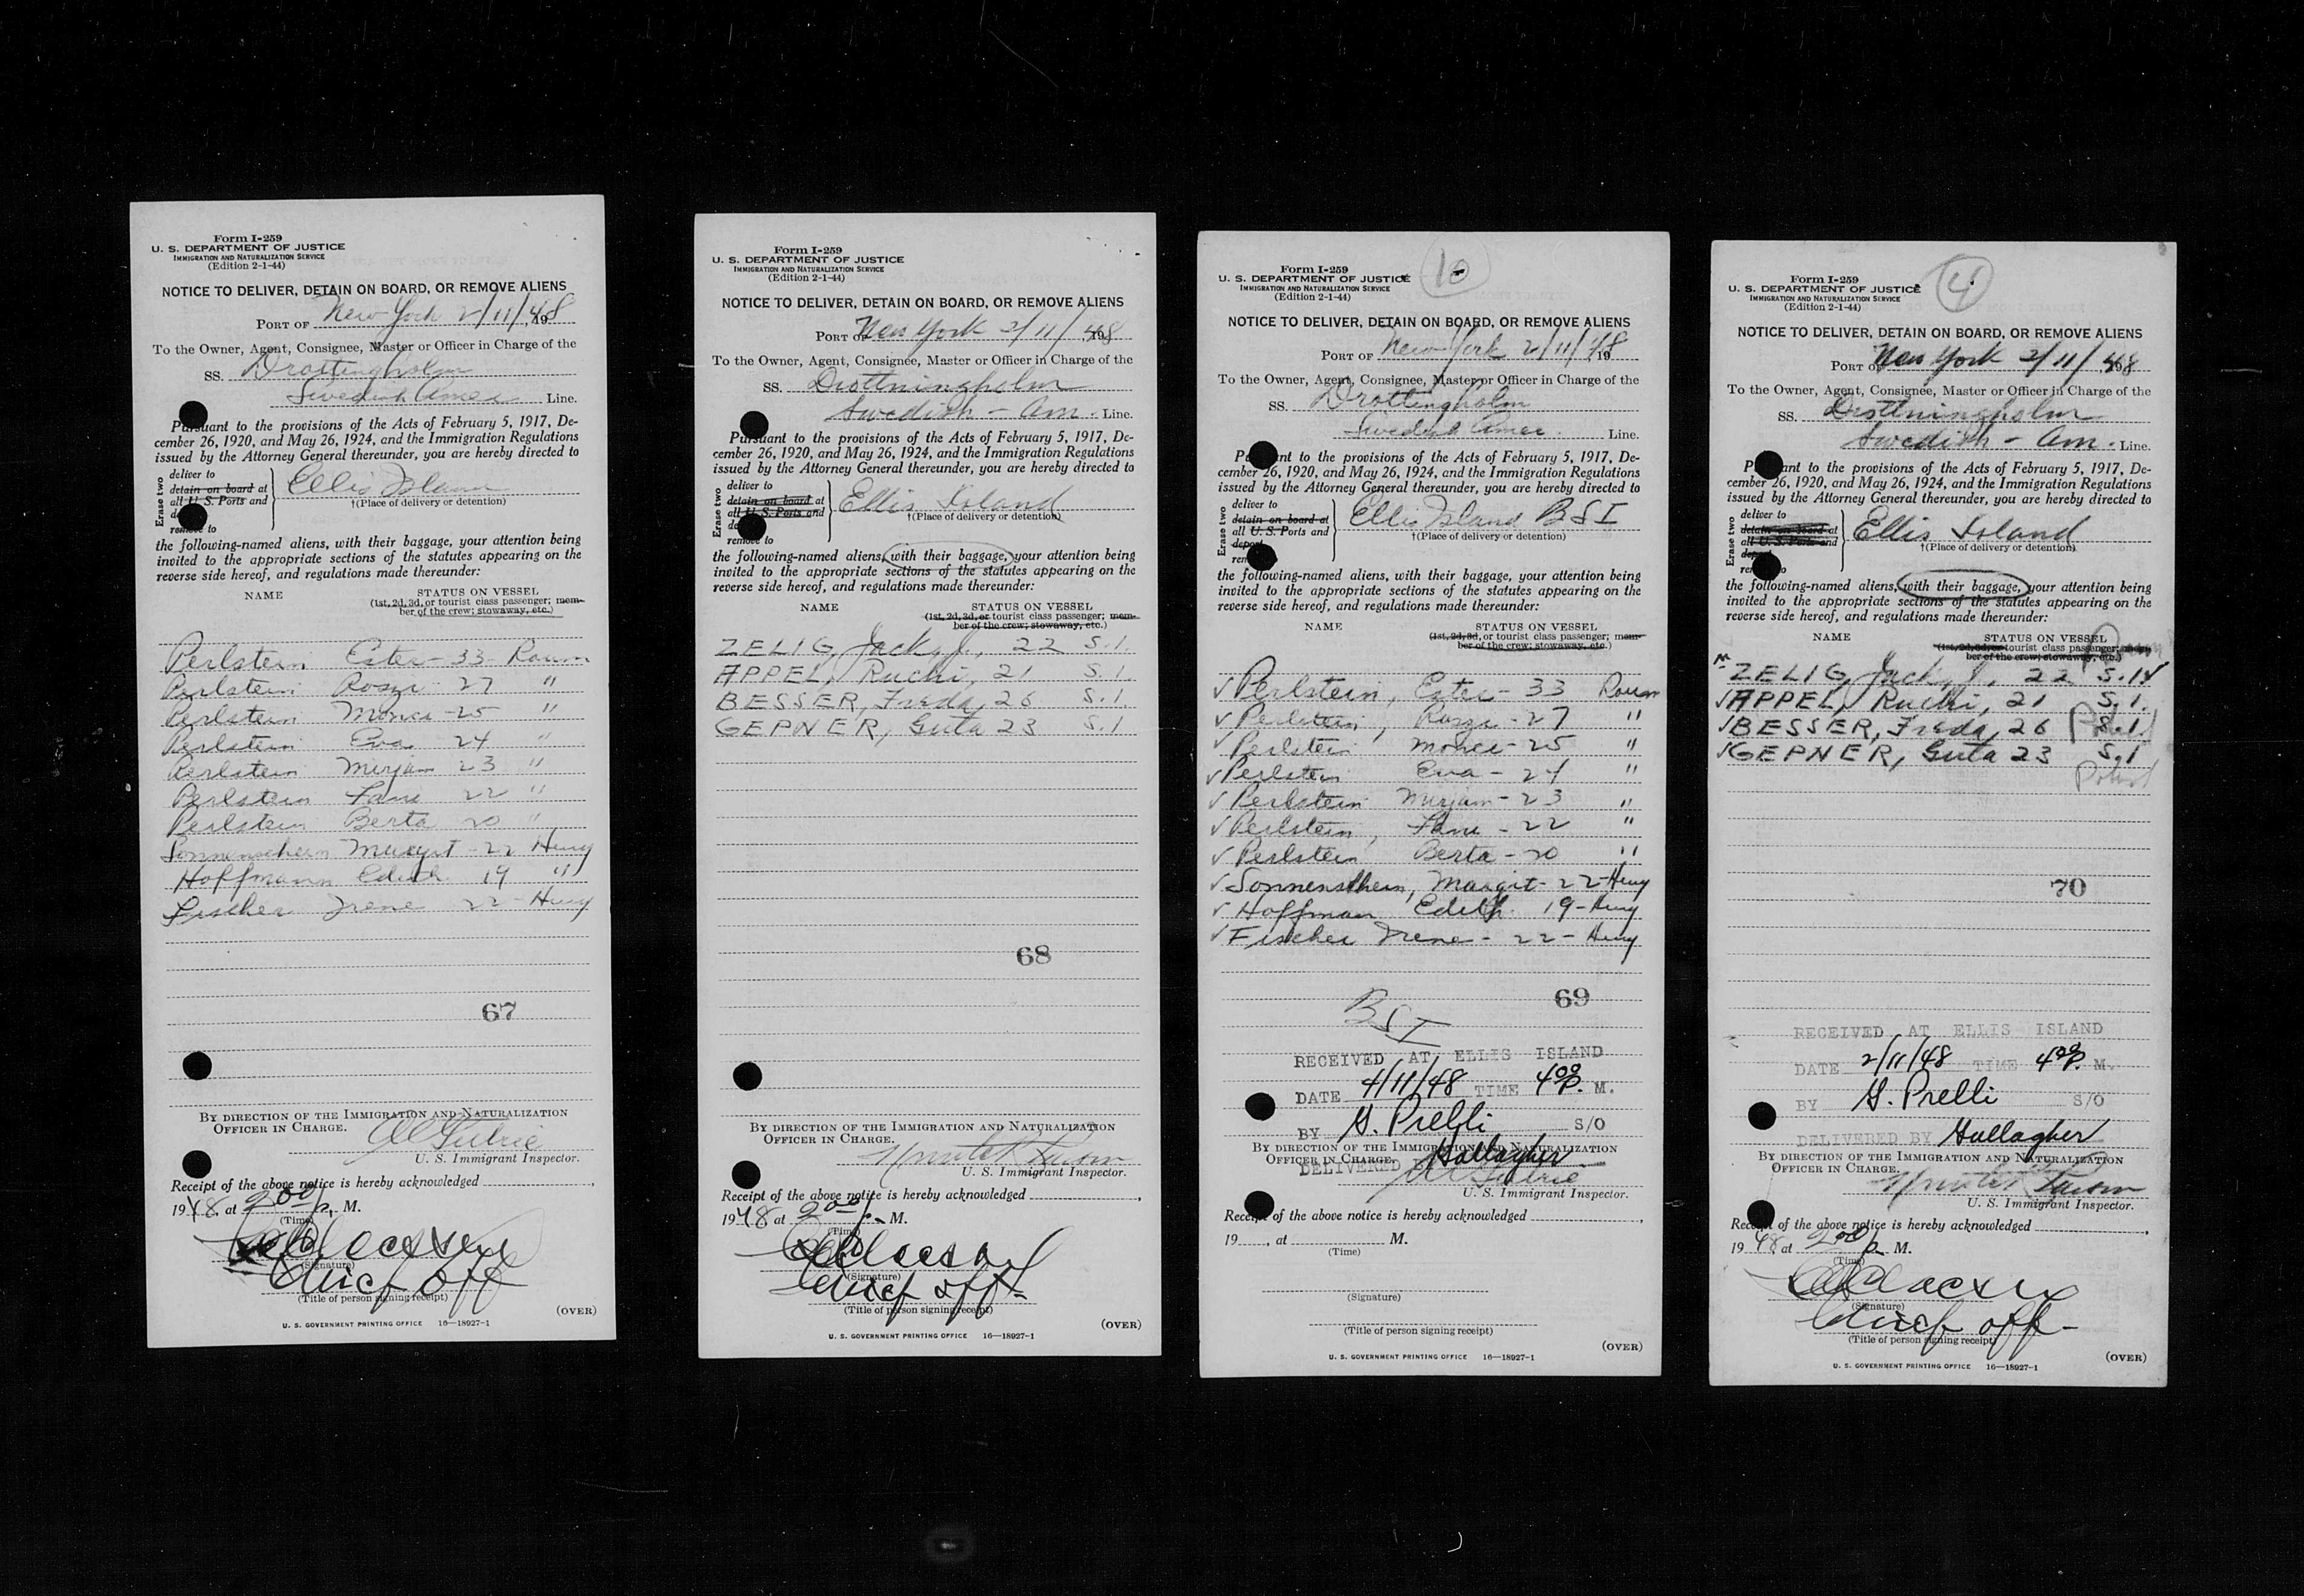 Form I-259
U. S. DEPARTMENT OF JUSTICE
IMMIGRATION AND NATURALIZATION SERVICE
(Edition 2-1-44)
NOTICE TO DELIVER, DETAIN ON BOARD, OR REMOVE ALIENS
PORT OF New York 2/11/, 1948
To the Owner, Agent, Consignee, Master or Officer in Charge of the
SS. Drottingholm
Swedish Amer Line.
Pursuant to the provisions of the Acts of February 5, 1917, De-
cember 26, 1920, and May 26, 1924, and the Immigration Regulations
issued by the Attorney General thereunder, you are hereby directed to
Erase two
deliver to
detain on board at
all U. S. Ports and
remove to
Ellis Island
†(Place of delivery or detention)
the following-named aliens, with their baggage, your attention being
invited to the appropriate sections of the statutes appearing on the
reverse side hereof, and regulations made thereunder:
NAME STATUS ON VESSEL
(1st, 2d, 3d, or tourist class passenger; mem-
ber of the crew; stowaway, etc.)
Perlstein Ester - 33 - Roum
Perlstein Rosza - 27 "
Perlstein Monci - 25 "
Perlstein Eva 24 "
Perlstein Mirjam 23 "
Perlstein Fani 22 "
Perlstein Berta 20 "
Sonnenschein Margit - 22 Hung
Hoffmann Edith 19 "
Fischer Irene 22 - Hung
67
BY DIRECTION OF THE IMMIGRATION AND NATURALIZATION
OFFICER IN CHARGE.
U. S. Immigrant Inspector.
Receipt of the above notice is hereby acknowledged
1948, at 2:00 p. M.
(Time)
(Signature)
Chief Off
(Title of person signing receipt)
(OVER)
U. S. GOVERNMENT PRINTING OFFICE 16—18927-1
Form I-259
U. S. DEPARTMENT OF JUSTICE
IMMIGRATION AND NATURALIZATION SERVICE
(Edition 2-1-44)
NOTICE TO DELIVER, DETAIN ON BOARD, OR REMOVE ALIENS
PORT OF New York 2/11/, 1948
To the Owner, Agent, Consignee, Master or Officer in Charge of the
SS. Drottningholm
Swedish - Am. Line.
Pursuant to the provisions of the Acts of February 5, 1917, De-
cember 26, 1920, and May 26, 1924, and the Immigration Regulations
issued by the Attorney General thereunder, you are hereby directed to
Erase two
deliver to
detain on board at
all U. S. Ports and
remove to
Ellis Island
†(Place of delivery or detention)
the following-named aliens, with their baggage, your attention being
invited to the appropriate sections of the statutes appearing on the
reverse side hereof, and regulations made thereunder:
NAME STATUS ON VESSEL
(1st, 2d, 3d, or tourist class passenger; mem-
ber of the crew; stowaway, etc.)
ZELIG, Jack, J., 22 S.I.
APPEL, Ruchi, 21 S.I.
BESSER, Freda, 26 S.I.
GEPNER, Guta 23 S.I
68
BY DIRECTION OF THE IMMIGRATION AND NATURALIZATION
OFFICER IN CHARGE.
U. S. Immigrant Inspector.
Receipt of the above notice is hereby acknowledged
1948 at 2:00 p. M.
(Time)
(Signature)
Chief off.
(Title of person signing receipt)
(OVER)
U. S. GOVERNMENT PRINTING OFFICE 16—18927-1
10
Form I-259
U. S. DEPARTMENT OF JUSTICE
IMMIGRATION AND NATURALIZATION SERVICE
(Edition 2-1-44)
NOTICE TO DELIVER, DETAIN ON BOARD, OR REMOVE ALIENS
PORT OF New York 2/11/, 1948
To the Owner, Agent, Consignee, Master or Officer in Charge of the
SS. Drottingholm
Swedish Amer. Line.
Pursuant to the provisions of the Acts of February 5, 1917, De-
cember 26, 1920, and May 26, 1924, and the Immigration Regulations
issued by the Attorney General thereunder, you are hereby directed to
Erase two
deliver to
detain on board at
all U. S. Ports and
deport
Ellis Island BSI
†(Place of delivery or detention)
the following-named aliens, with their baggage, your attention being
invited to the appropriate sections of the statutes appearing on the
reverse side hereof, and regulations made thereunder:
NAME STATUS ON VESSEL
(1st, 2d, 3d, or tourist class passenger; mem-
ber of the crew; stowaway, etc.)
✓ Perlstein, Ester - 33 Roum
✓ Perlstein, Rosza - 27 "
✓ Perlstein Monci - 25 "
✓ Perlstein Eva - 24 "
✓ Perlstein Mirjam - 23 "
✓ Perlstein, Fani - 22 "
✓ Perlstein Berta - 20 "
✓ Sonnenschein, Margit - 22 - Hung
✓ Hoffman Edith 19 - Hung
✓ Fischer Irene - 22 - Hung
69
BSI
RECEIVED AT ELLIS ISLAND
DATE 4/11/48 TIME 4:00 P. M.
BY G. Prelli S/O
BY DIRECTION OF THE IMMIGRATION AND NATURALIZATION
OFFICER IN CHARGE.
DELIVERED Gallagher
U. S. Immigrant Inspector.
Receipt of the above notice is hereby acknowledged
19 , at M.
(Time)
(Signature)
(Title of person signing receipt)
(OVER)
U. S. GOVERNMENT PRINTING OFFICE 16—18927-1
4
Form I-259
U. S. DEPARTMENT OF JUSTICE
IMMIGRATION AND NATURALIZATION SERVICE
(Edition 2-1-44)
NOTICE TO DELIVER, DETAIN ON BOARD, OR REMOVE ALIENS
PORT OF New York 2/11/, 1948
To the Owner, Agent, Consignee, Master or Officer in Charge of the
SS. Drottningholm
Swedish - Am. Line.
Pursuant to the provisions of the Acts of February 5, 1917, De-
cember 26, 1920, and May 26, 1924, and the Immigration Regulations
issued by the Attorney General thereunder, you are hereby directed to
Erase two
deliver to
detain on board at
all U. S. Ports and
deport
Ellis Island
†(Place of delivery or detention)
the following-named aliens, with their baggage, your attention being
invited to the appropriate sections of the statutes appearing on the
reverse side hereof, and regulations made thereunder:
NAME STATUS ON VESSEL
(1st, 2d, 3d, or tourist class passenger; mem-
ber of the crew; stowaway, etc.)
ZELIG, Jack, J., 22 S.I. ✓
✓ APPEL, Ruchi, 21 S.I.
✓ BESSER, Freda, 26 S.I.
✓ GEPNER, Guta 23 S.I
Poland
70
RECEIVED AT ELLIS ISLAND
DATE 2/11/48 TIME 4:00 P. M.
BY G. Prelli S/O
DELIVERED BY Gallagher
BY DIRECTION OF THE IMMIGRATION AND NATURALIZATION
OFFICER IN CHARGE.
U. S. Immigrant Inspector.
Receipt of the above notice is hereby acknowledged
1948 at 2:00 p. M.
(Time)
(Signature)
Chief off.
(Title of person signing receipt)
(OVER)
U. S. GOVERNMENT PRINTING OFFICE 16—18927-1